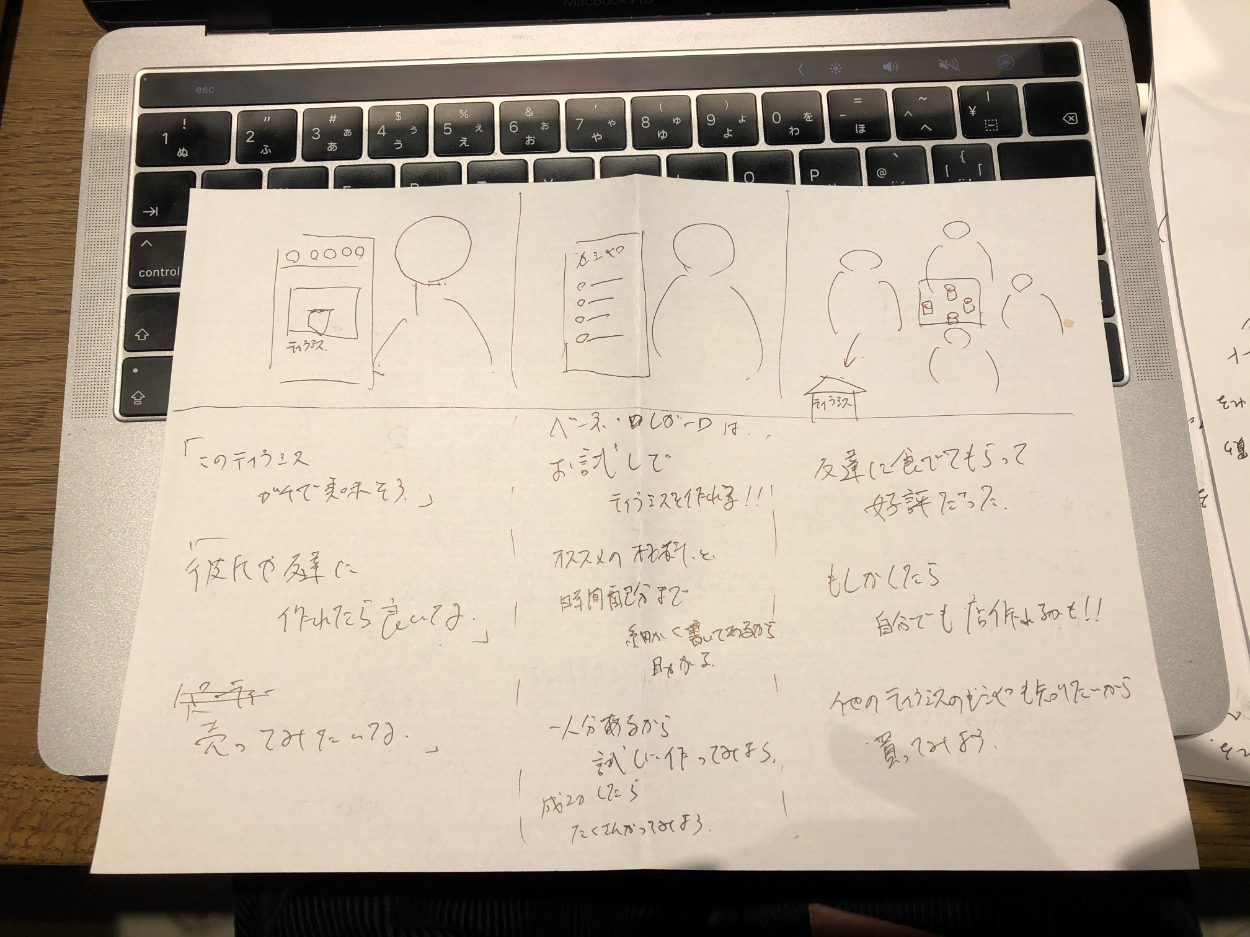 MacBook Pro
esc
! 1 ぬ
" 2 ふ
# 3 ぁ あ
$ 4 ぅ う
% 5 ぇ え
& 6 ぉ お
' 7 ゃ や
( 8 ゅ ゆ
) 9 ょ よ
0 を わ
= - ほ
~ ^ へ
| ¥
O
P
@
{ [ 「
control
ティラミス
カシャロ
ティラミス
「このティラミス
ガチで美味そう。」
「彼氏や友達に
作れたら良いてな。」
売ってみたいてな。」
ベーネ・ロレガーロは、
お試しで
ティラミスを作れる!!
オススメの材料と
時間配分まで
細かく書いてあるから
助かる
一人分あるから
試しに作ってみよう。
成功したら
たくさんかってみよう。
友達に食べてもらって
好評だった。
もしかしたら
自分でも店作れるかも!!
他のティラミスのレシピも知りたいから
買ってみよう。